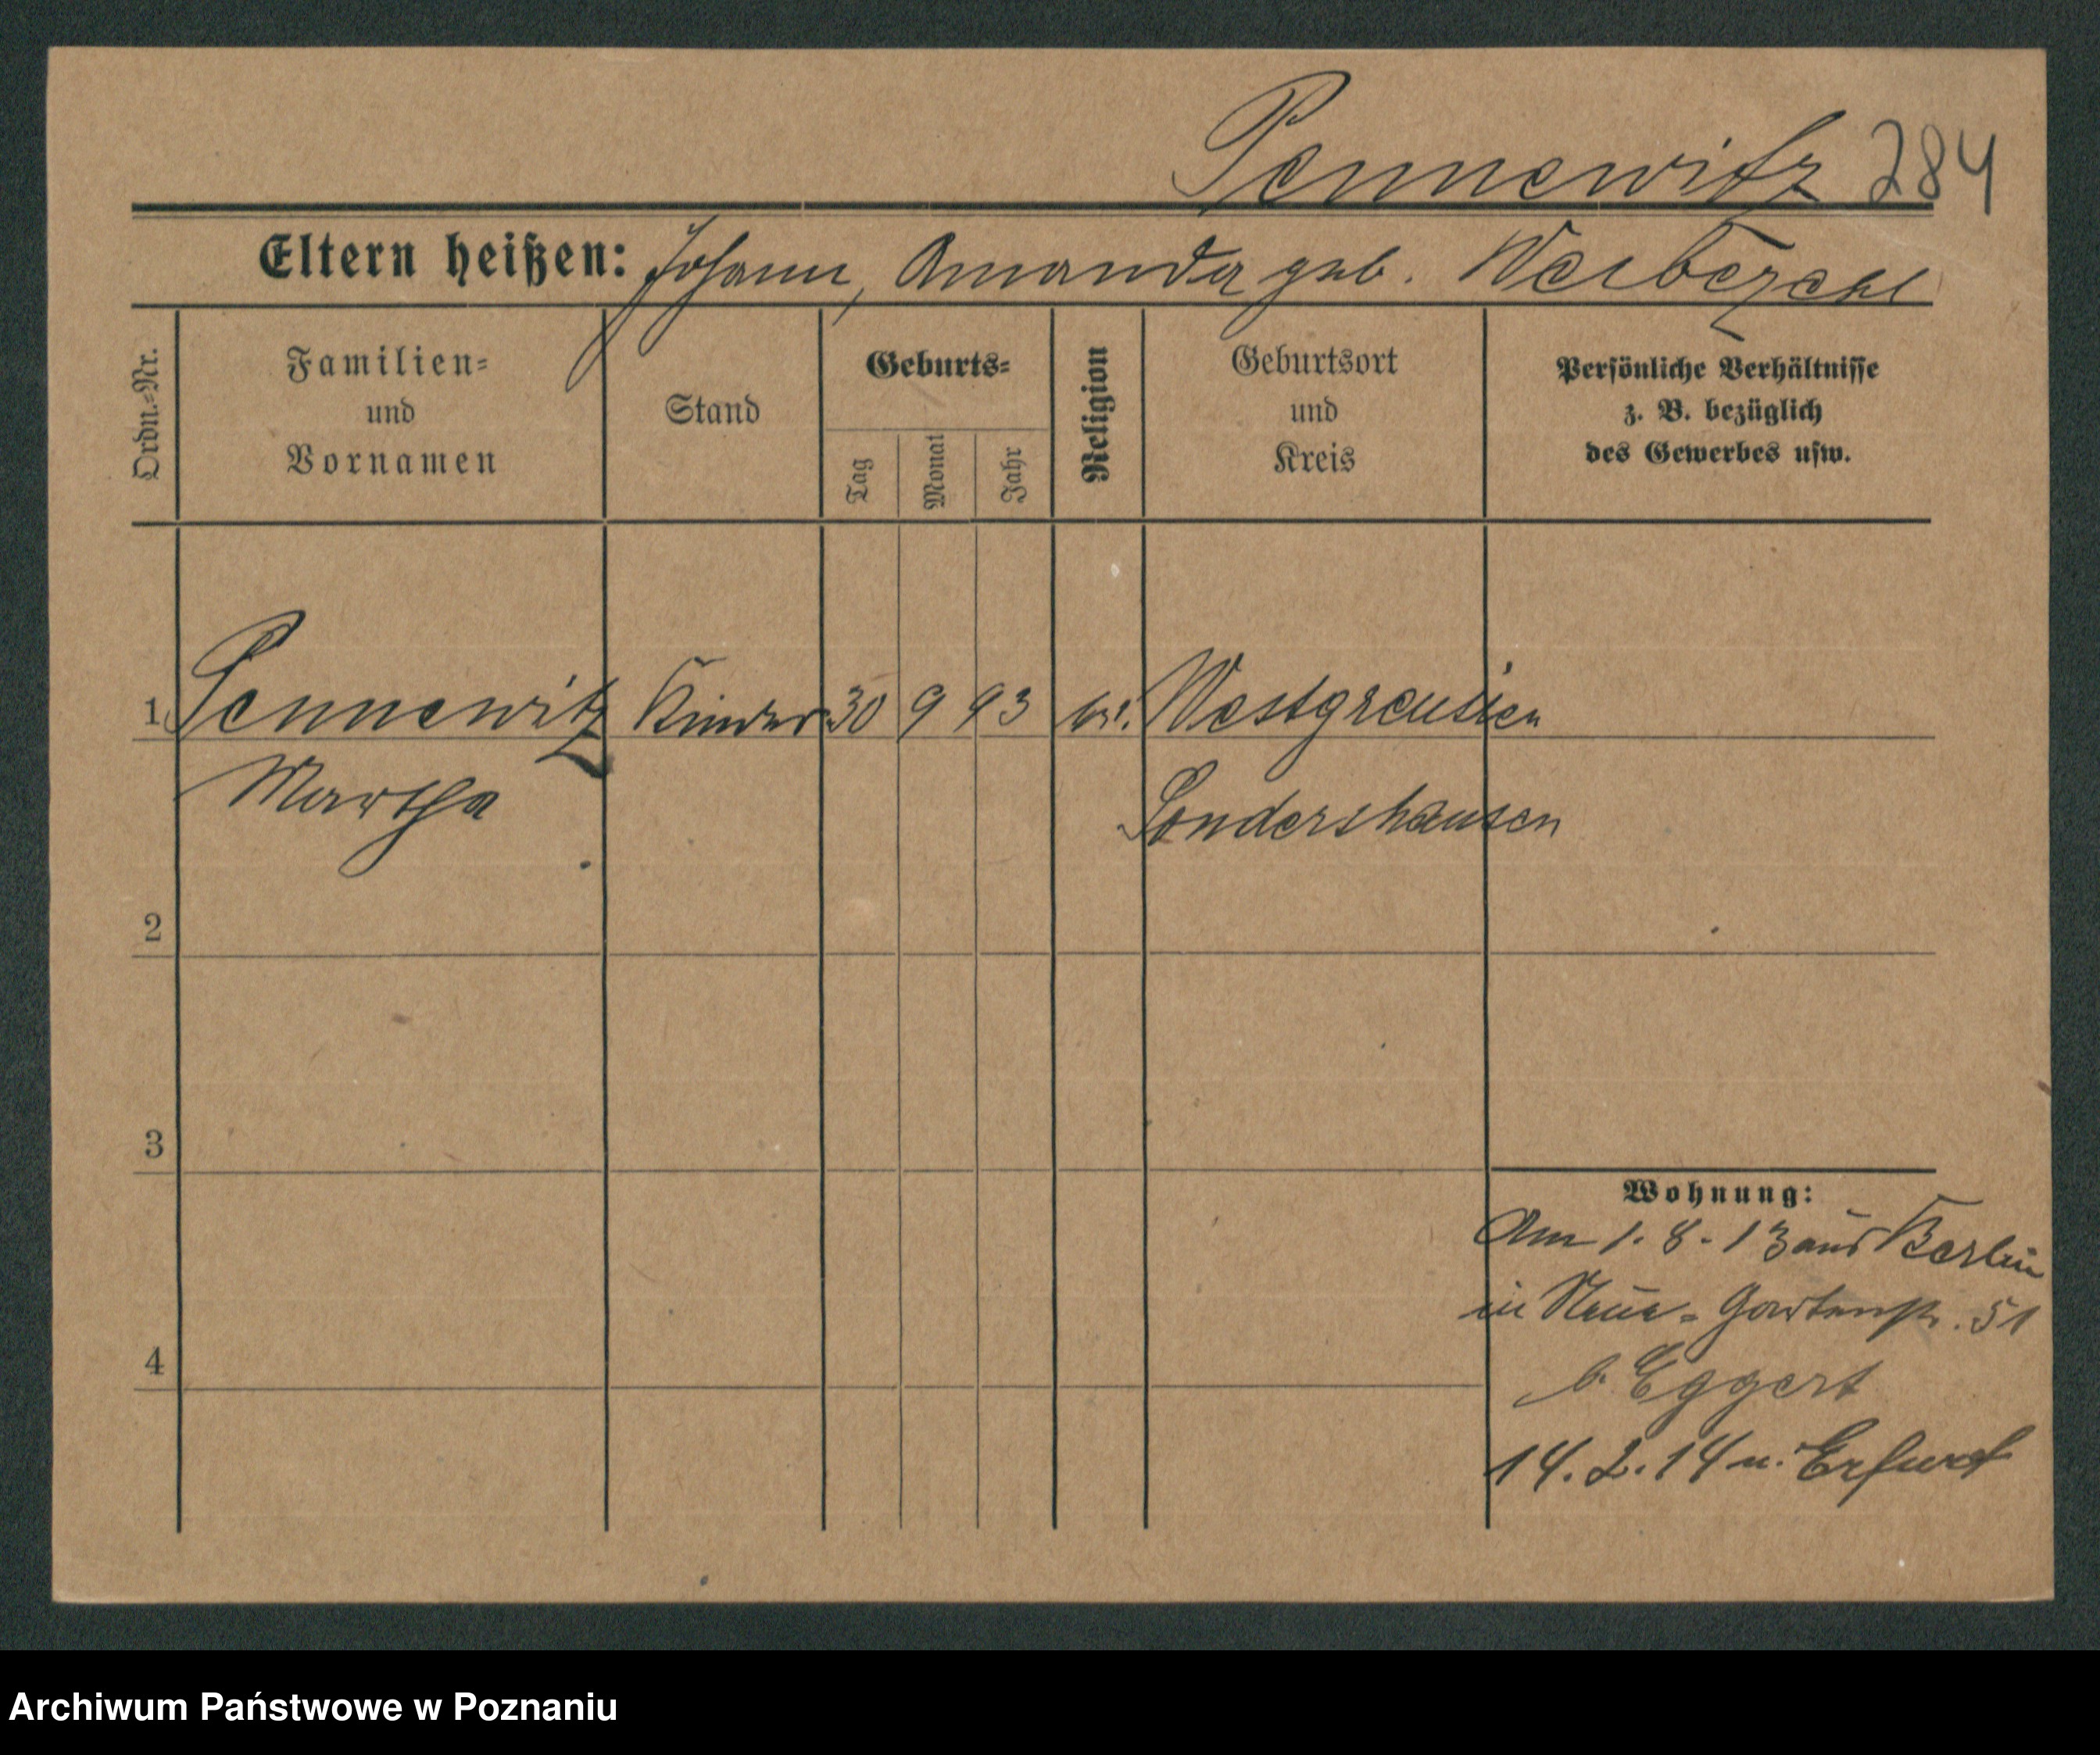 Pennewitz 284
Eltern heißen: Johann, Amanda geb. Weibezahl
Ordn.-Nr.
Familien-
und
Vornamen
Stand
Geburts-
Tag
Monat
Jahr
Religion
Geburtsort
und
Kreis
Persönliche Verhältnisse
z. B. bezüglich
des Gewerbes usw.
1 Pennewitz 30 9 93 Westgreussen
Martha Sondershausen
2
3
4
Wohnung:
Am 1.8.13 aus Berlin
in Neue-Gartenstr. 51
b. Eggert
14.2.14 n. Erfurt
Archiwum Państwowe w Poznaniu